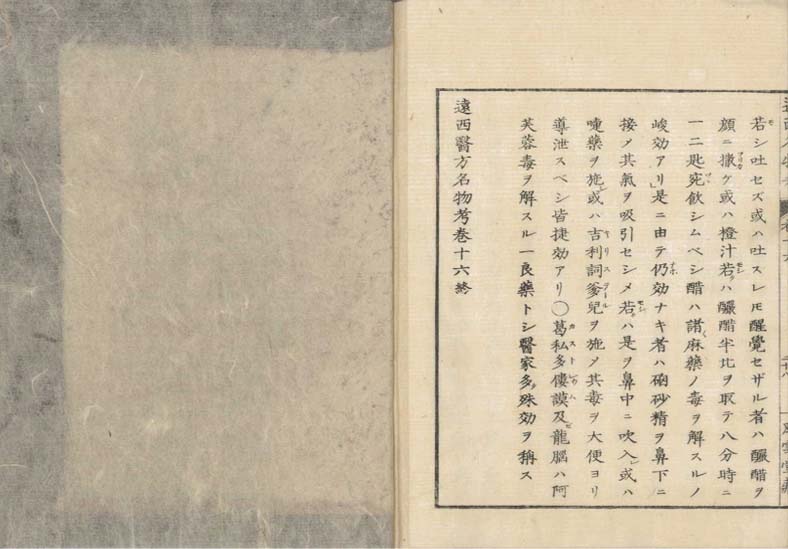 若シ吐セズ或ハ吐スレ𪜈醒覺セザル者ハ釅醋ヲ
顔ニ撒ケ或ハ橙汁若クハ釅醋半匕ヲ取テ八分時ニ
一二匙宛飲シムベシ醋ハ諸麻藥ノ毒ヲ解スルノ
峻効アリ是ニ由テ仍効ナキ者ハ硇砂精ヲ鼻下ニ
接メ其氣ヲ吸引セシメ若クハ是ヲ鼻中ニ吹入レ或ハ
嚏藥ヲ施シ或ハ吉利詞爹兒ヲ施メ其毒ヲ大便ヨリ
導泄スベシ皆捷効アリ○葛私多僂謨及ビ龍腦ハ阿
芙蓉毒ヲ解スル一良藥トシ醫家多ク殊効ヲ稱ス
遠西醫方名物考卷十六終